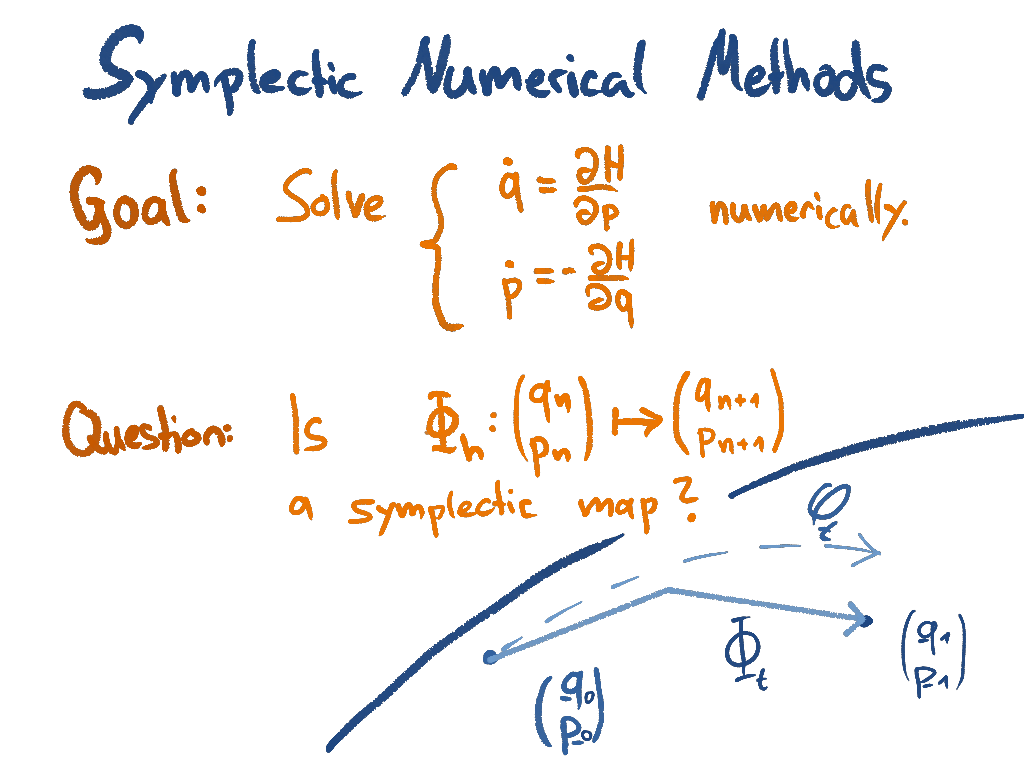 Symplectic Numerical Methods
Goal: Solve { q̇ = ∂H/∂p numerically.
ṗ = - ∂H/∂q
Question: Is Φ_h : (q_n p_n) ↦ (q_{n+1} p_{n+1})
a symplectic map?
φ_t
Φ_t
(q_0 p_0)
(q_1 p_1)